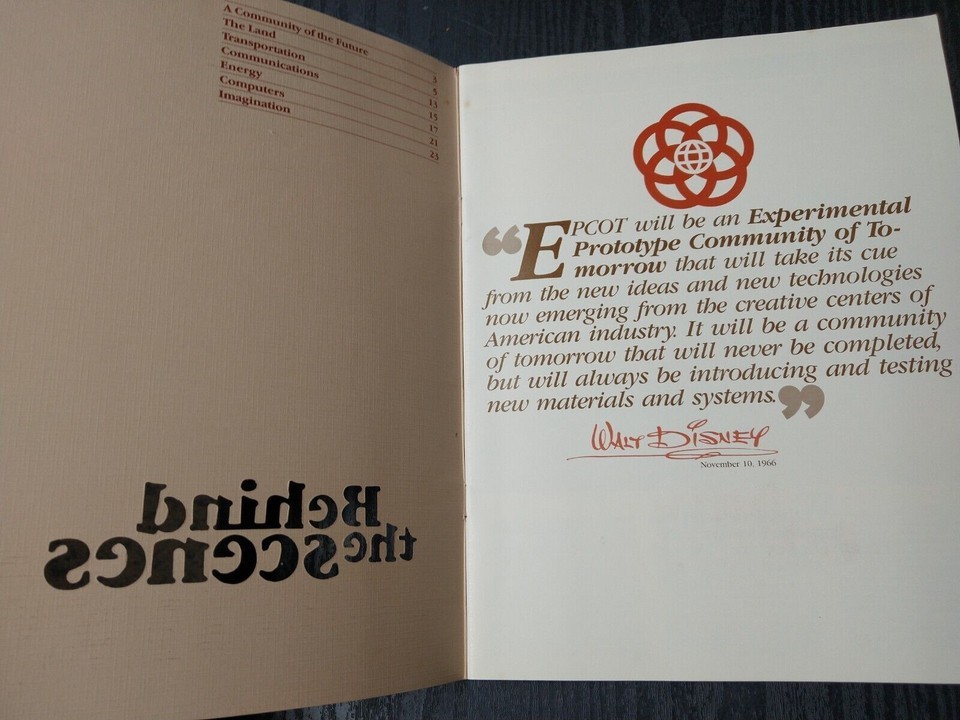 A Community of the Future 3
The Land 5
Transportation 13
Communications 15
Energy 17
Computers 21
Imagination 23
Behind
the scenes
“EPCOT will be an Experimental
Prototype Community of To-
morrow that will take its cue
from the new ideas and new technologies
now emerging from the creative centers of
American industry. It will be a community
of tomorrow that will never be completed,
but will always be introducing and testing
new materials and systems.”
Walt Disney
November 10, 1966